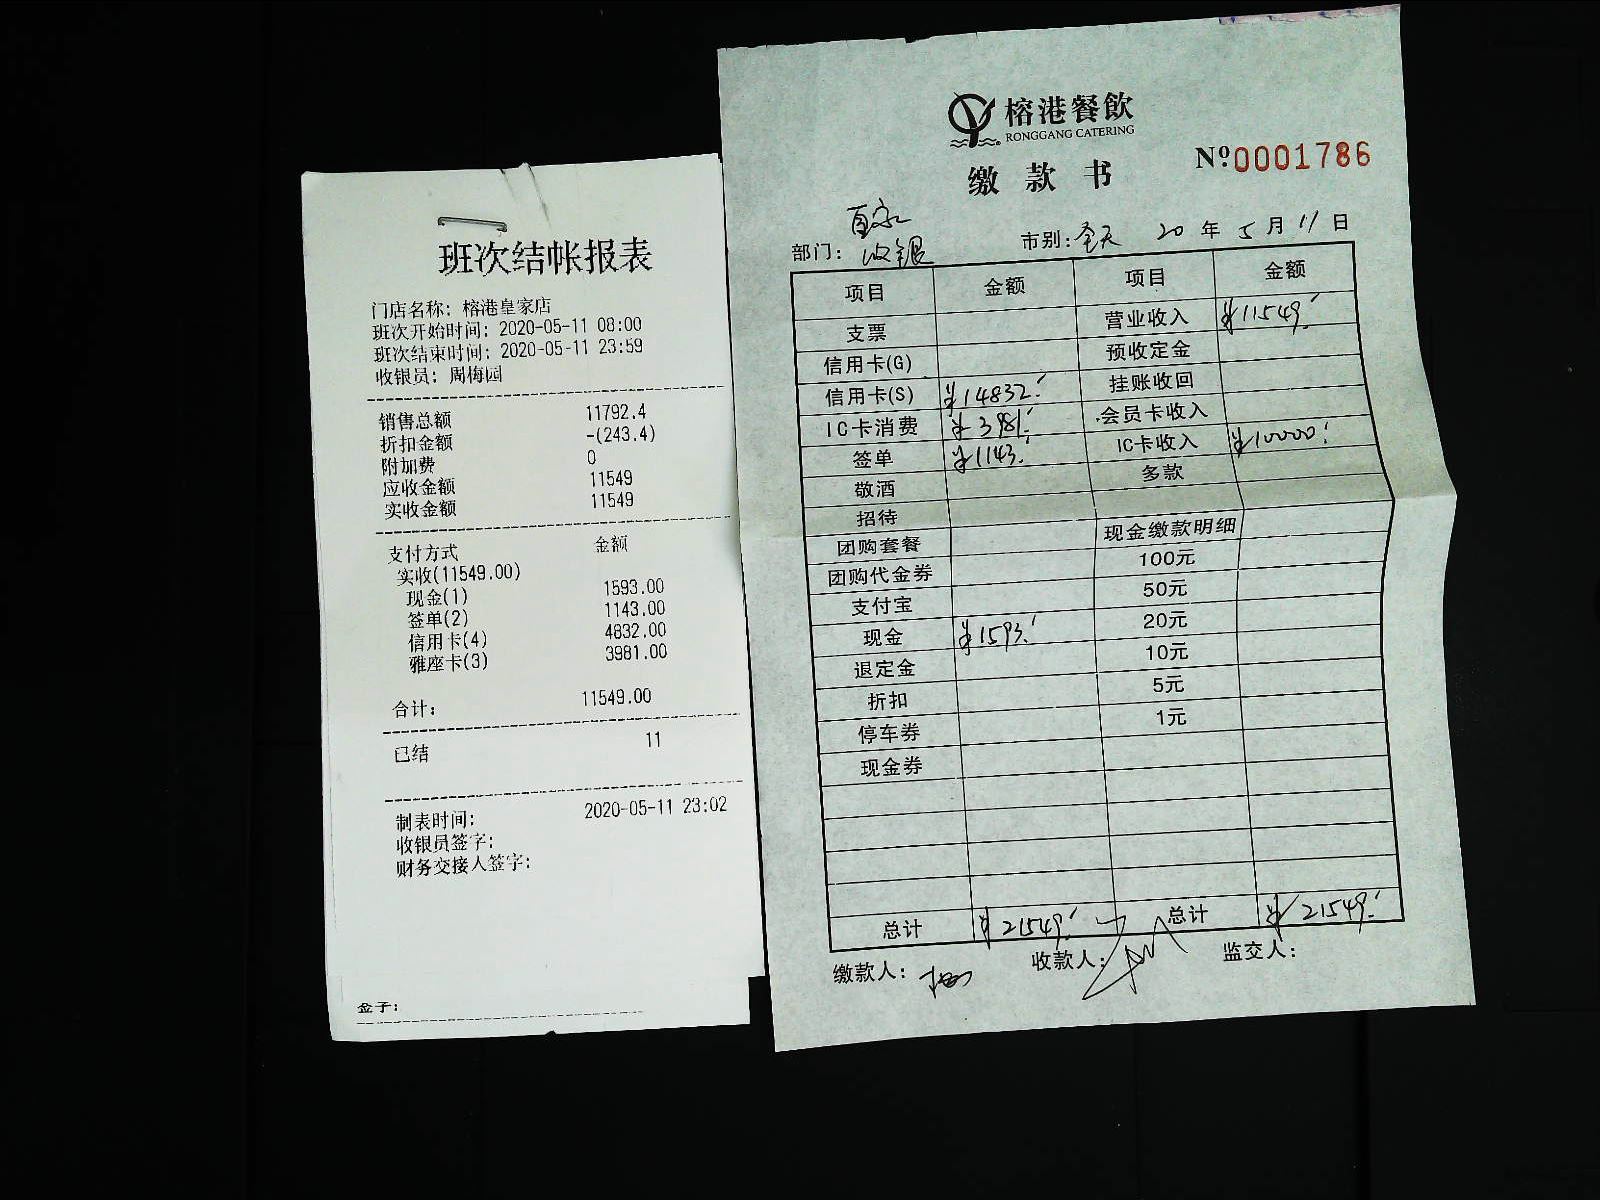 班次结帐报表
门店名称：榕港皇家店
班次开始时间：2020-05-11 08:00
班次结束时间：2020-05-11 23:59
收银员：周梅园
销售总额 11792.4
折扣金额 -(243.4)
附加费 0
应收金额 11549
实收金额 11549
支付方式 金额
实收(11549.00)
现金(1) 1593.00
签单(2) 1143.00
信用卡(4) 4832.00
雅座卡(3) 3981.00
合计： 11549.00
已结 11
制表时间： 2020-05-11 23:02
收银员签字：
财务交接人签字：
金子：
榕港餐飲
RONGGANG CATERING
缴款书
№0001786
皇家
部门：收银 市别：全天 20年5月11日
项目 金额 项目 金额
支票 营业收入 ¥11549.-
信用卡(G) 预收定金
信用卡(S) ¥14832.- 挂账收回
IC卡消费 ¥3981.- 会员卡收入
签单 ¥1143.- IC卡收入 ¥10000.-
敬酒 多款
招待
团购套餐 现金缴款明细
团购代金券 100元
支付宝 50元
现金 ¥1593.- 20元
退定金 10元
折扣 5元
停车券 1元
现金券
总计 ¥21549.- 总计 ¥21549.-
缴款人： 收款人： 监交人：